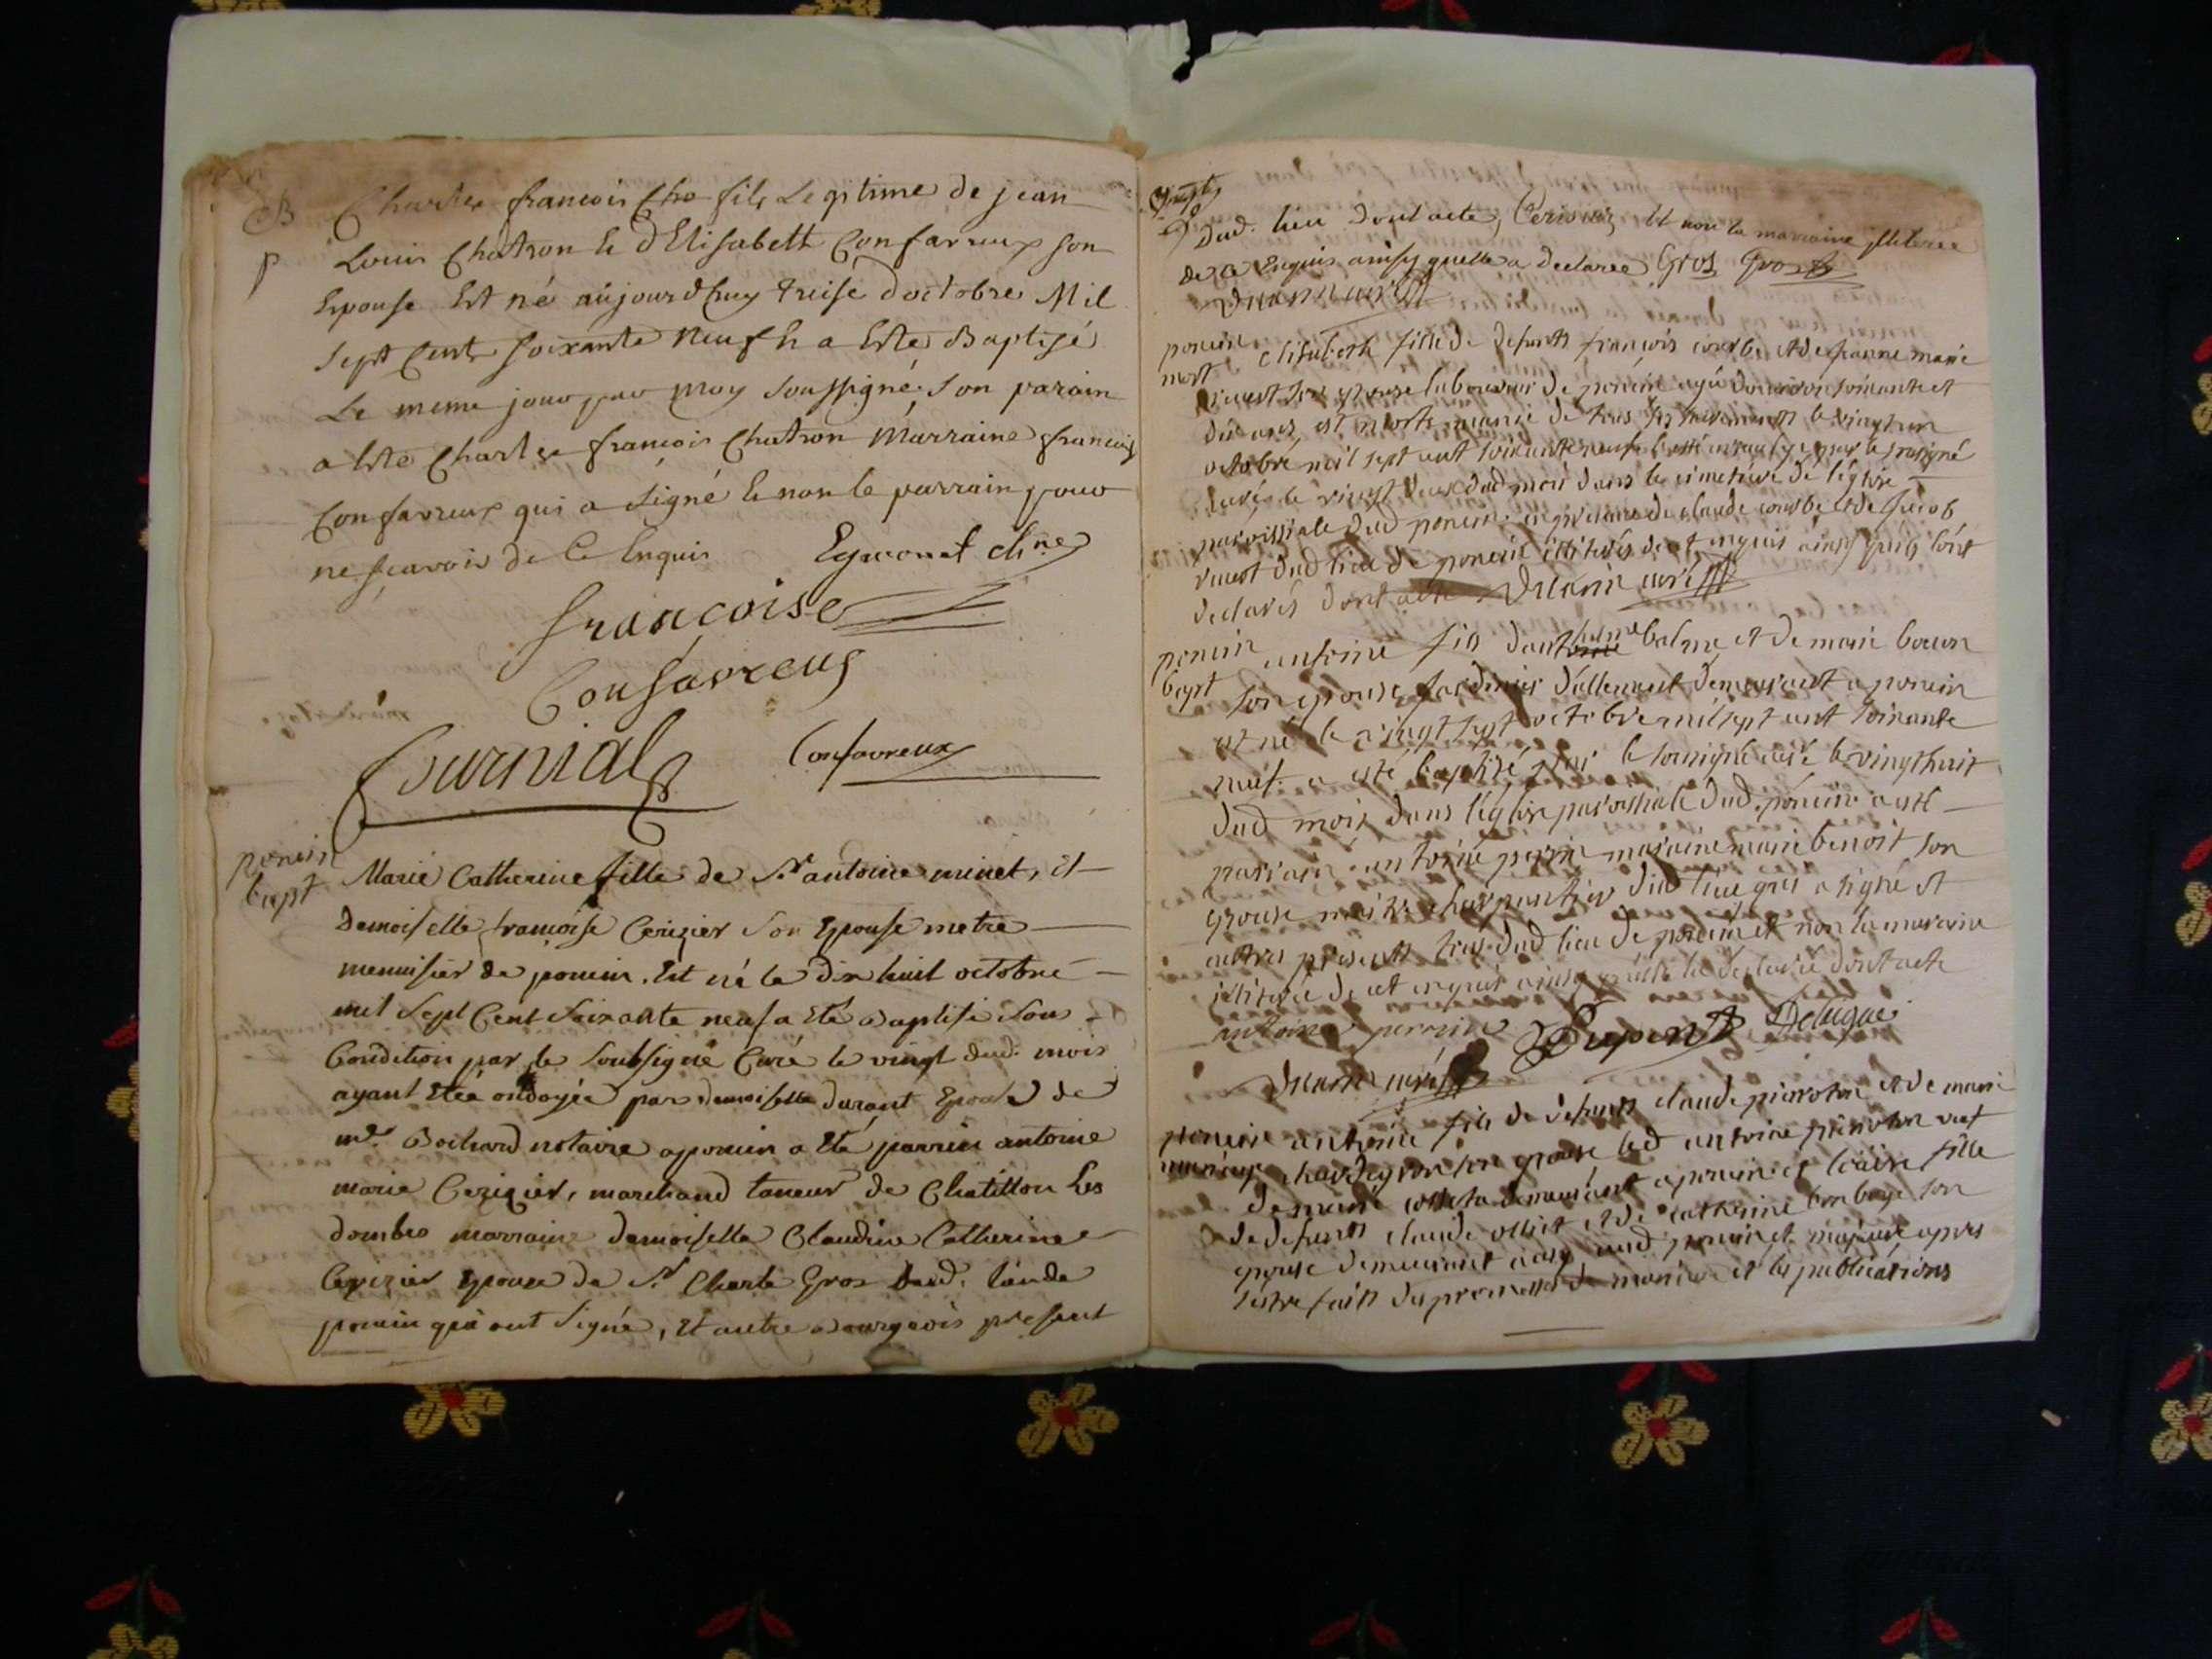 B
Charles francois Cho fils Legitime de jean
P
Louis Chatron & d'Elisabeth Confavreux son
Epouse Est né aujourdhuy treise doctobre Mil
Sept Cents soixante neuf & a Este Baptisé
Le meme jour par moy soussigné. Son parain
a Este Charles francois Chatron Marraine francoise
Confavreux qui a Signé & non le parrain pour
ne scavoir de Ce Enquis
francoise
Confavreus
Curnial
Confavreux
poncin
bapt
Marie Catherine fille de Sr antoine minet, et
Demoiselle francoise Cerizier Son Epouse metre
menuisier de poncin. Est né le dix huit octobre
mil Sept Cent Soixante neuf a Eté Baptisé Sou
Condition par le Soubsigné Curé le vingt dud. mois
ayant Eteé ondoyée par demoiselle durant Epouse de
me. Bochard notaire a poncin a Eté parrin antoine
marie Cerizier, marchand taneur de Chatillon Les
dombes marraine demoiselle Claudine Catherine
Cerizier Epouse de Sr Charle Gros dud. lieu de
poncin qui ont Signé, Et autre Bourgeois present
dud. lieu dont acte, Cerisier, Et non la marraine illiterée
de ce Enquis ainsy quelle a declaree Gros Gros
poncin
mort
elisabeth fille de defunts francois courbe et de jeanne marie
vuest son epouse laboureur de poncin agée denviron soixante et
dix ans, est morte munie de tous les sacrements le vingt un
octobre mil sept cent soixante neuf a esté par le soussigné
curé le vingt deux dud. mois dans le cimetiere de l'église
paroissiale dud poncin. en presence de claude courbe et de jacob
vuest dud lieu de poncin illiterés de ce enquis ainsy quils l'ont
declarés dont acte curé
poncin
bapt
antoine fils d'anthelme balme et de marie
son epouse, demeurant a poncin
est né le vingt sept octobre mil sept cent soixante
neuf. a esté baptisé par le soussigné curé le vingt huit
dud mois dans l'église paroissiale dud. poncin a esté
parrain antoine perrin maraine marie benoit son
epouse maitre charpentier dud lieu qui a signé et
autres presents tous dud lieu de poncin et non la maraine
illiterée de ce enquis ainsy quelle la declaré dont acte
antoine perrin Dupont
curé
poncin
mariage
antoine fils de defunt claude et de marie
son epouse led antoine veuf
de marie demeurant a poncin et claire fille
de defunt claude et de catherine son
epouse demeurant aussy aud. poncin et majeure apres
s'estre faits des promesses de mariage et les publications